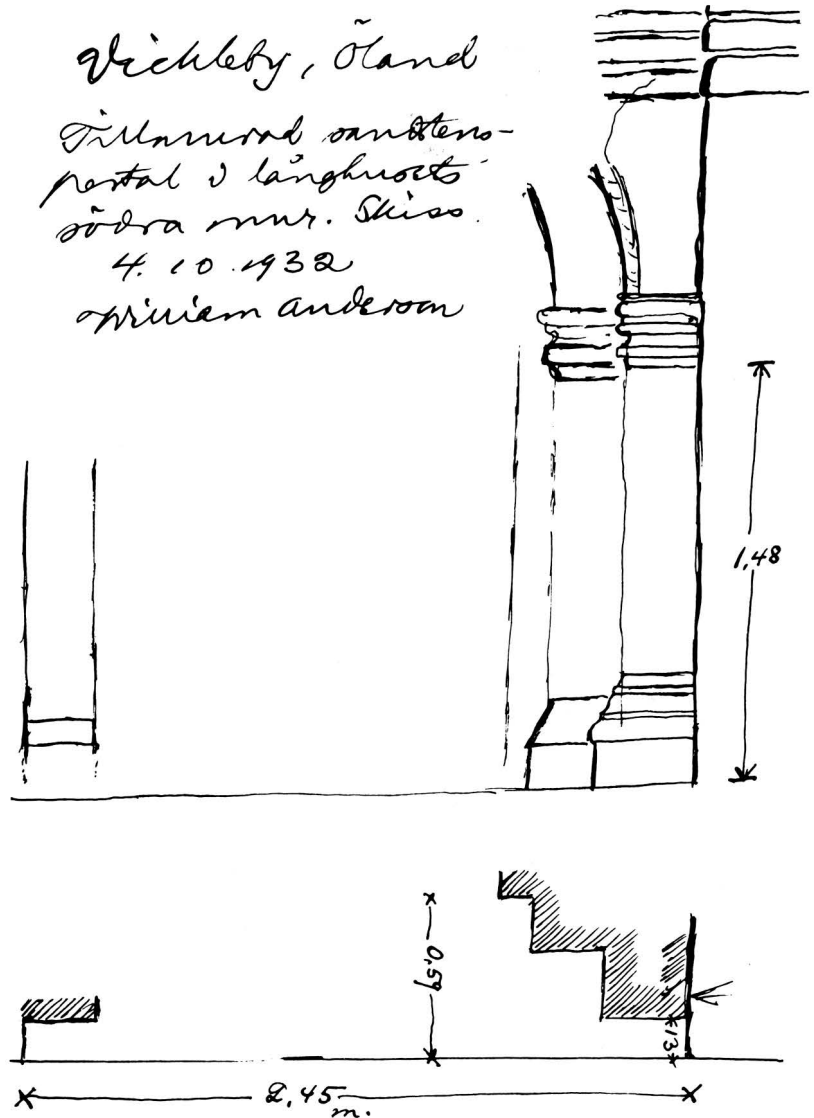 Vickleby, Öland
Tillmurad sandstens-
portal i långhusets
södra mur. Skiss.
4. 10. 1932
William Anderson
1,48
0,59
13
2,45
m.